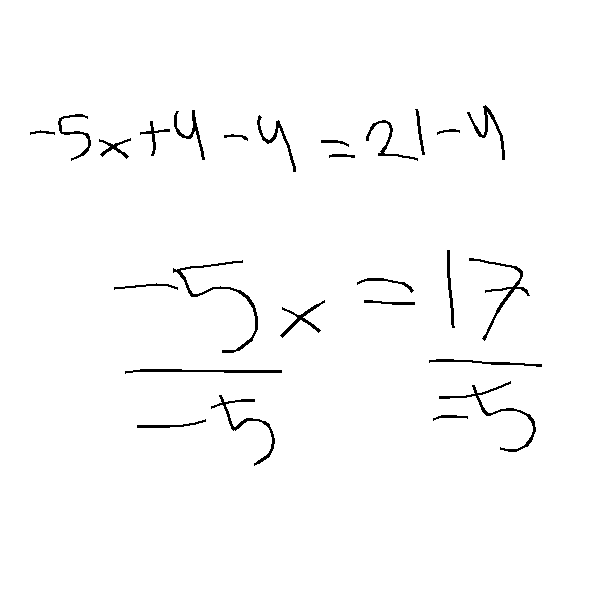 -5x+4-4=21-4
-5x=17
-5 -5